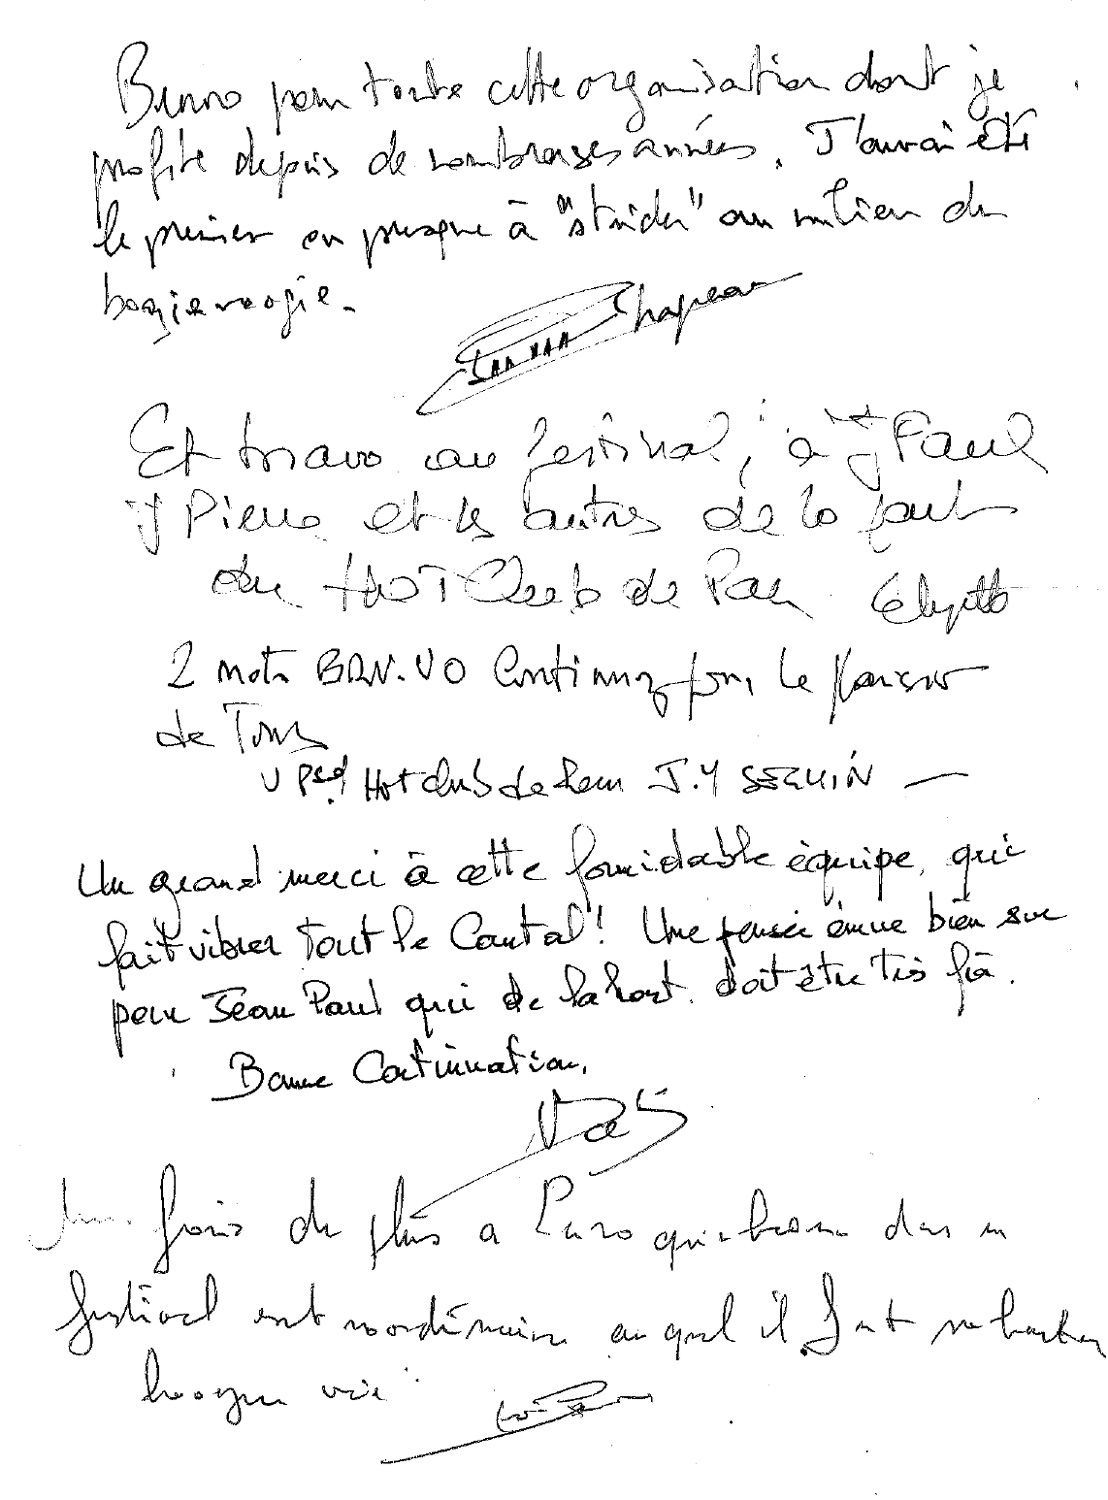 Bravo pour toute cette organisation dont je
profite depuis de nombreuses années. J'aurai été
le premier ou presque à "strider" au milieu du
boogie woogie.
Chapeau
Et bravo au festival, à J Paul
J Pierre et les autres de la part
du HOT Club de Pau
2 mots BRA.VO Continuez pour le plaisir
de Tous
V Psd Hot club de Pau J.Y SEGUIN
Un grand merci à cette formidable équipe, qui
fait vibrer tout le Cantal! Une pensée émue bien sur
pour Jean Paul qui de là haut. doit être très fier.
Bonne Continuation.
fois de plus a
festival extraordinaire auquel il faut